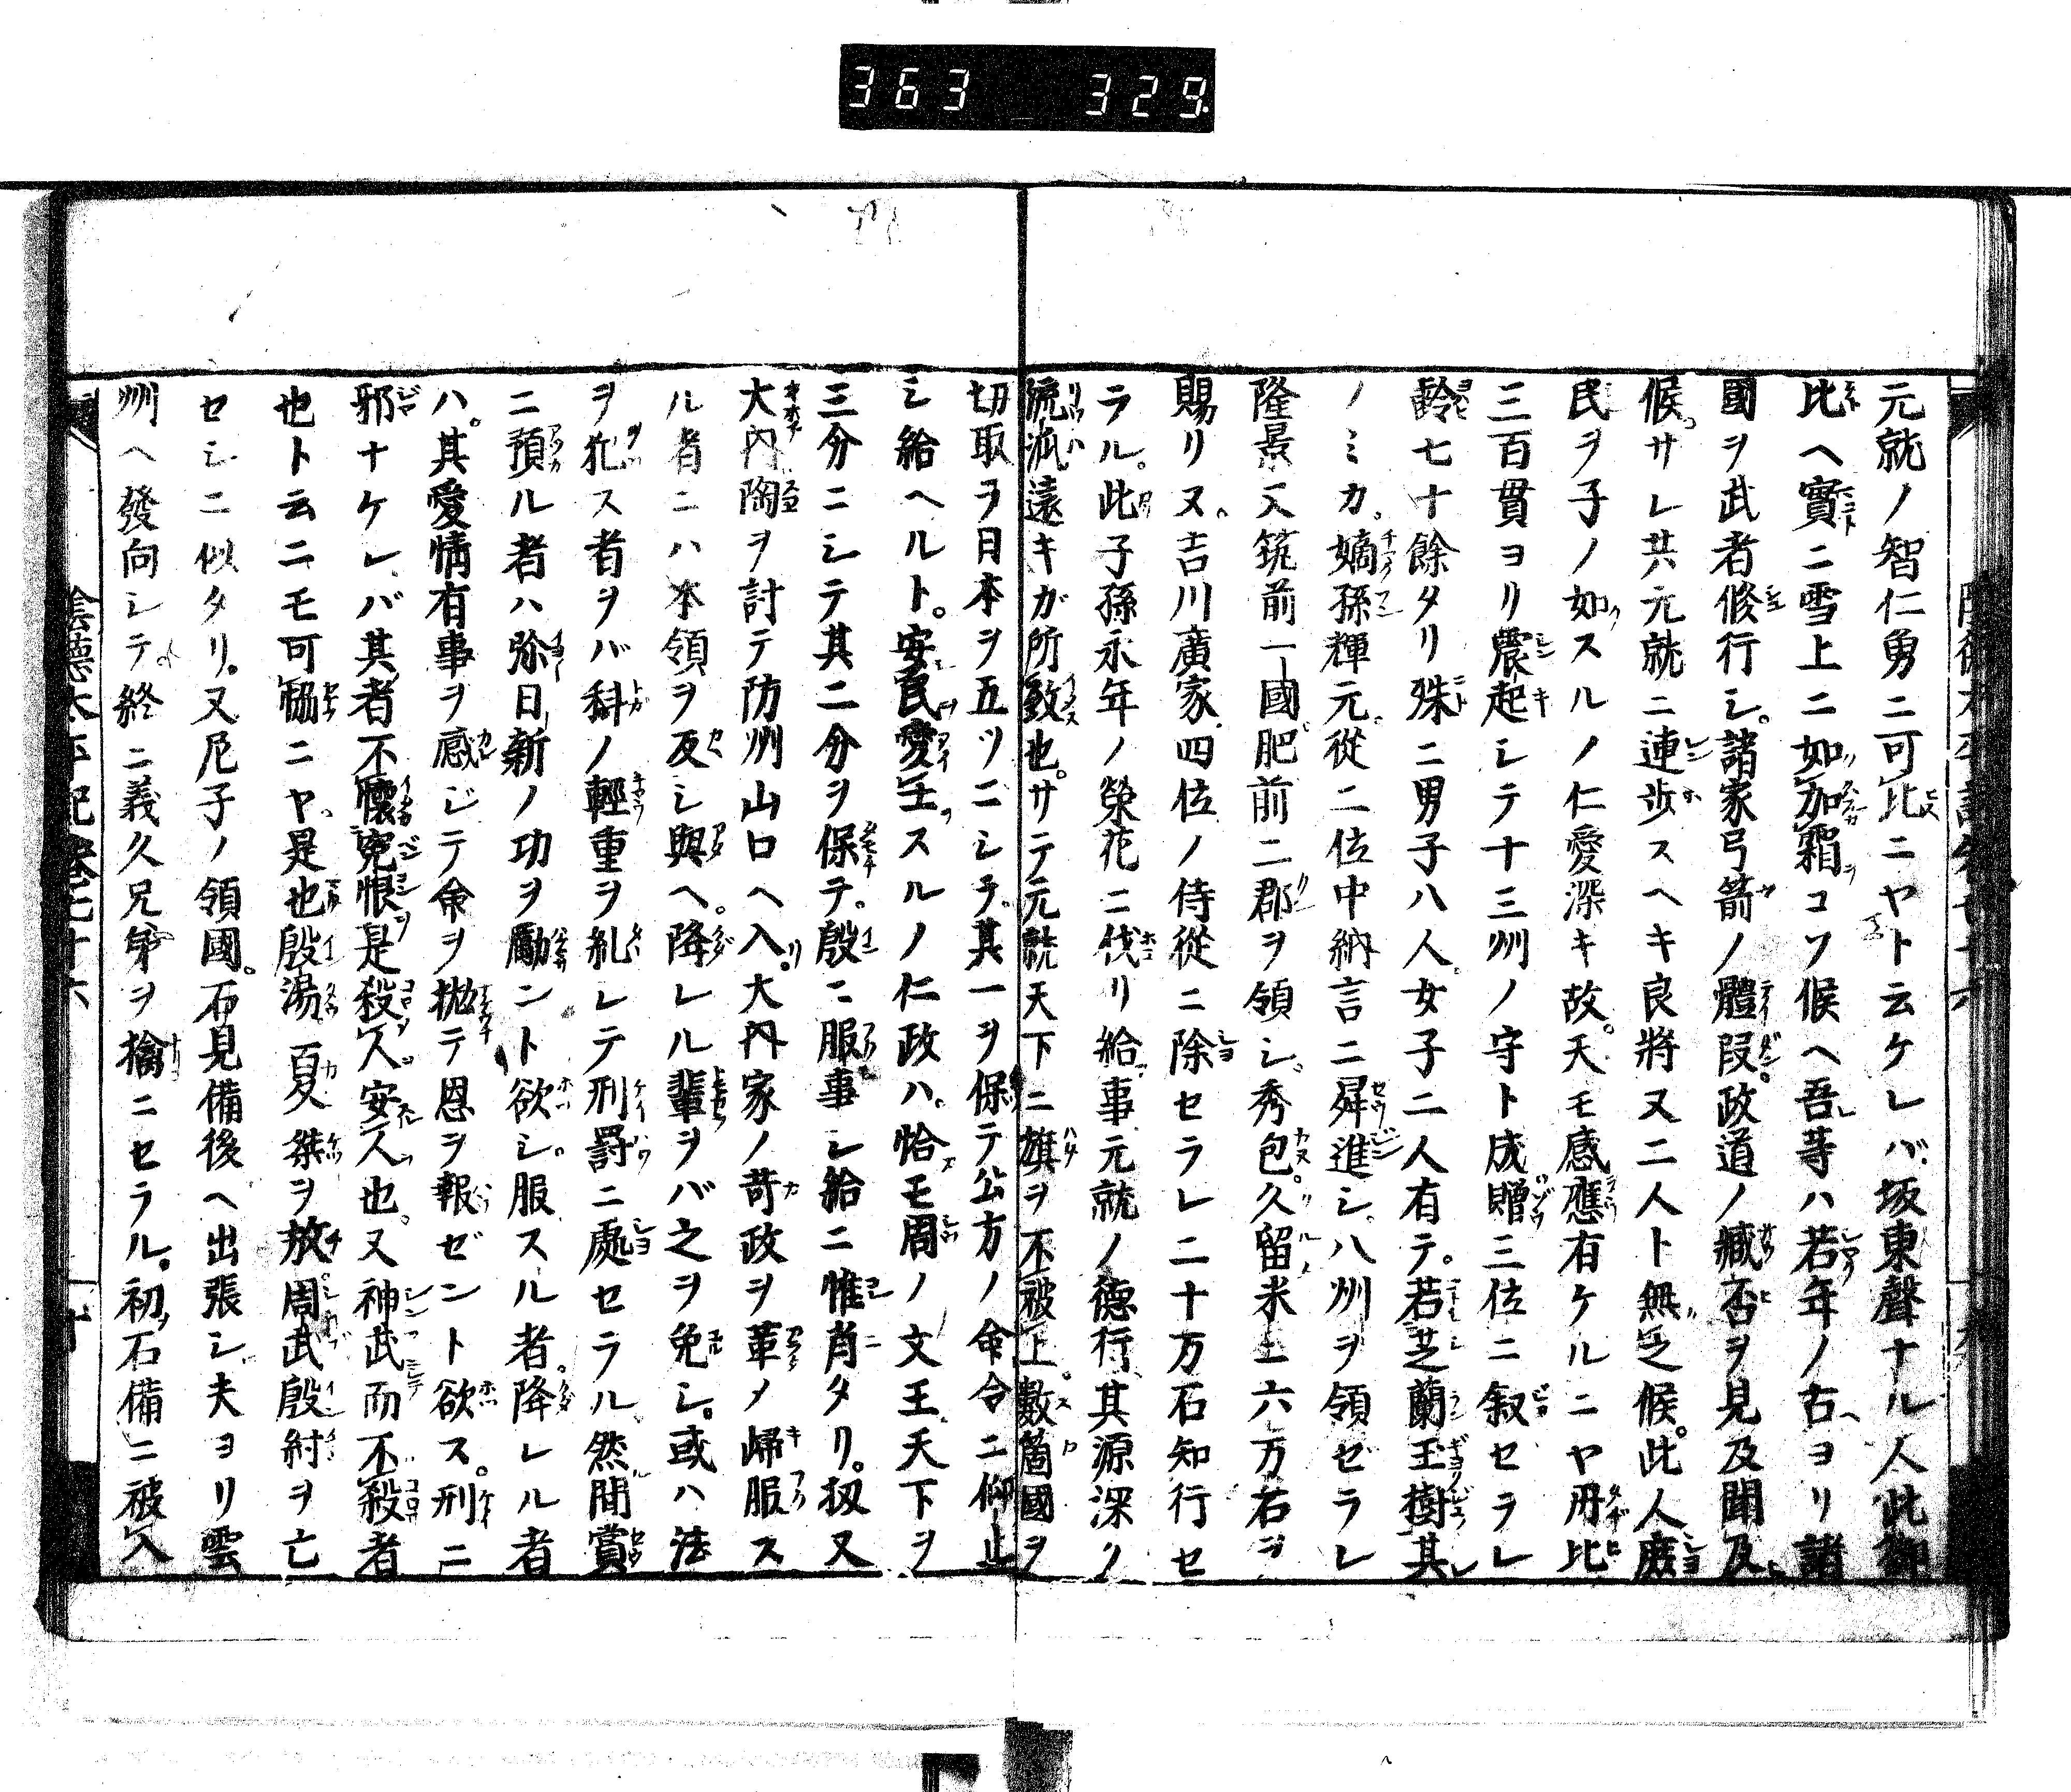 363 329
元就ノ智仁勇ニ可比ニヤト云ケレバ坂東聲ナル人此御
比ヘ實ニ雪上ニ如加霜コソ候ヘ吾等ハ若年ノ古ヨリ諸
國ヲ武者修行シ。諸家弓箭ノ體段。政道ノ臧否ヲ見及聞及
候サレ共元就ニ連歩スヘキ良將又二人ト無之候。此人庶
民ヲ子ノ如スルノ仁愛深キ故。天モ感應有ケルニヤ所比
三百貫ヨリ農起シテ十三州ノ守ト成贈三位ニ叙セラレ
齢七十餘タリ殊ニ男子八人女子二人有テ。若芝蘭玉樹其
ノミカ。嫡孫輝元。從二位中納言ニ舜進シ。八州ヲ領ゼラレ
隆景又筑前一國肥前二郡ヲ領シ。秀包。久留米ニ六万石ヲ
賜リヌ。吉川廣家四位ノ侍從ニ除セラレ二十万石知行セ
ラル。此子孫永年ノ榮花ニ伐リ給事元就ノ德行其源深ク
流派遠キガ所致也。サテ元就天下ニ旗ヲ不被上。數箇國ヲ
切取ヲ日本ヲ五ツニシテ。其一ヲ保テ公方ノ命令ニ仰止
シ給ヘルト。安民愛士スルノ仁政ハ。恰モ周ノ文王天下ヲ
三分ニシテ其二分ヲ保テ。殷ニ服事シ給ニ惟肖タリ。扨又
大内陶ヲ討テ防州山口ヘ入。大内家ノ苛政ヲ革メ歸服ス
ル者ニハ本領ヲ反シ與ヘ。降レル輩ヲバ之ヲ免シ。或ハ法
ヲ犯ス者ヲバ科ノ輕重ヲ糺レテ刑罸ニ處セラル。然間賞
ニ預ル者ハ弥日新ノ功ヲ勵ント欲シ。服スル者。降レル者
ハ。其愛情有事ヲ感ジテ命ヲ抛テ恩ヲ報ゼント欲ス。刑ニ
邪ナケレバ其者不懷寃恨是殺人安人也。又神武而不殺者
也ト云ニモ可恊ニヤ。是也殷湯夏桀ヲ放周武殷紂ヲ亡
セシニ似タリ。又尼子ノ領國。石見備後ヘ出張シ夫ヨリ雲
州ヘ發向シテ終ニ義久兄弟ヲ擒ニセラル。初石備ニ被入
陰德太平記卷七十六
十